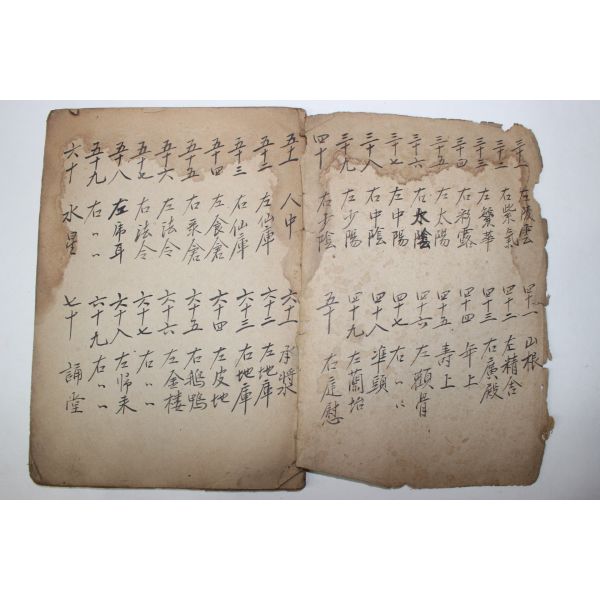 三十一 左陵雲 四十一 山根
三十二 右紫氣 四十二 左精舍
三十三 左繁華 四十三 右廣殿
三十四 右彩露 四十四 年上
三十五 左太陽 四十五 壽上
三十六 右太陰 四十六 左顴骨
三十七 左中陽 四十七 右〃〃
三十八 右中陰 四十八 準頭
三十九 左少陽 四十九 左蘭坮
四十 右少陰 五十 右廷慰
五十一 人中 六十一 承將水
五十二 左仙庫 六十二 左地庫
五十三 右仙庫 六十三 右地庫
五十四 左食倉 六十四 左皮地
五十五 右 倉 六十五 右鵝鴨
五十六 左法令 六十六 左金樓
五十七 右法令 六十七 右〃〃
五十八 左 耳 六十八 左歸来
五十九 右〃〃 六十九 右〃〃
六十 水星 七十 誦堂